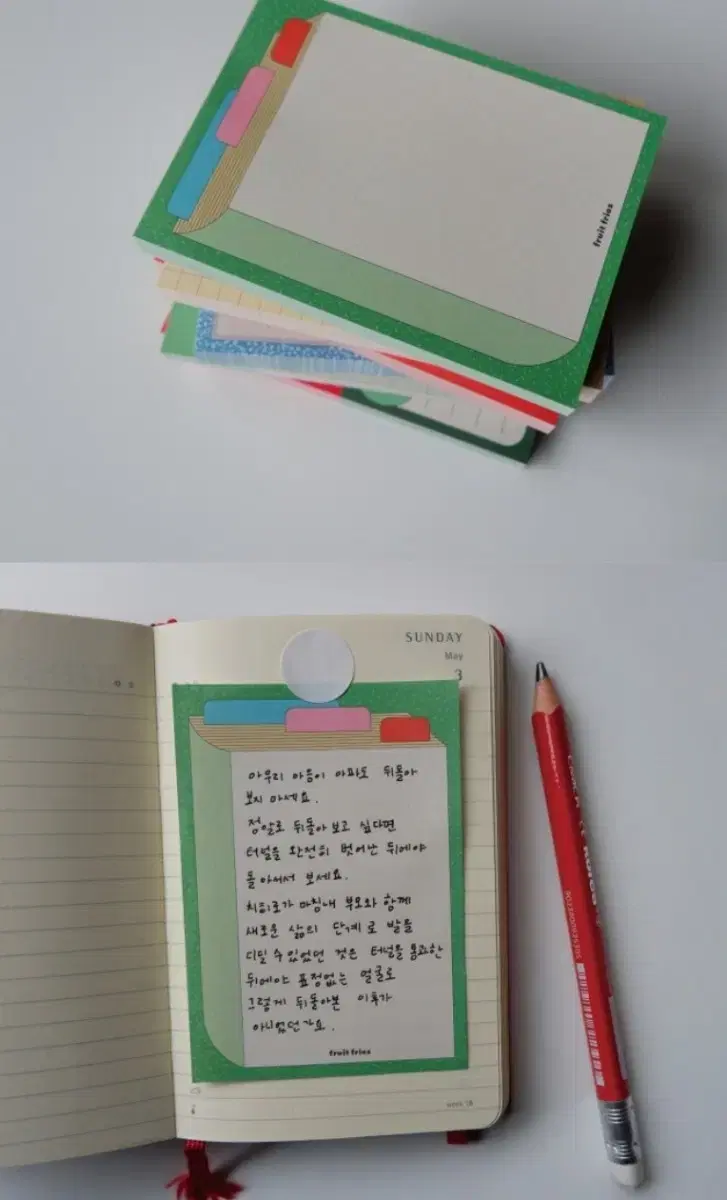 fruit fries
SUNDAY
May
3
아무리 마음이 아파도 뒤돌아
보지 마세요.
정말로 뒤돌아 보고 싶다면
터널을 완전히 벗어난 뒤에야
돌아서서 보세요.
치히로가 마침내 부모와 함께
새로운 삶의 단계로 발을
디딜 수 있었던 것은 터널을 통과한
뒤에야 표정없는 얼굴로
그렇게 뒤돌아본 이후가
아니었던가요.
fruit fries
week 18